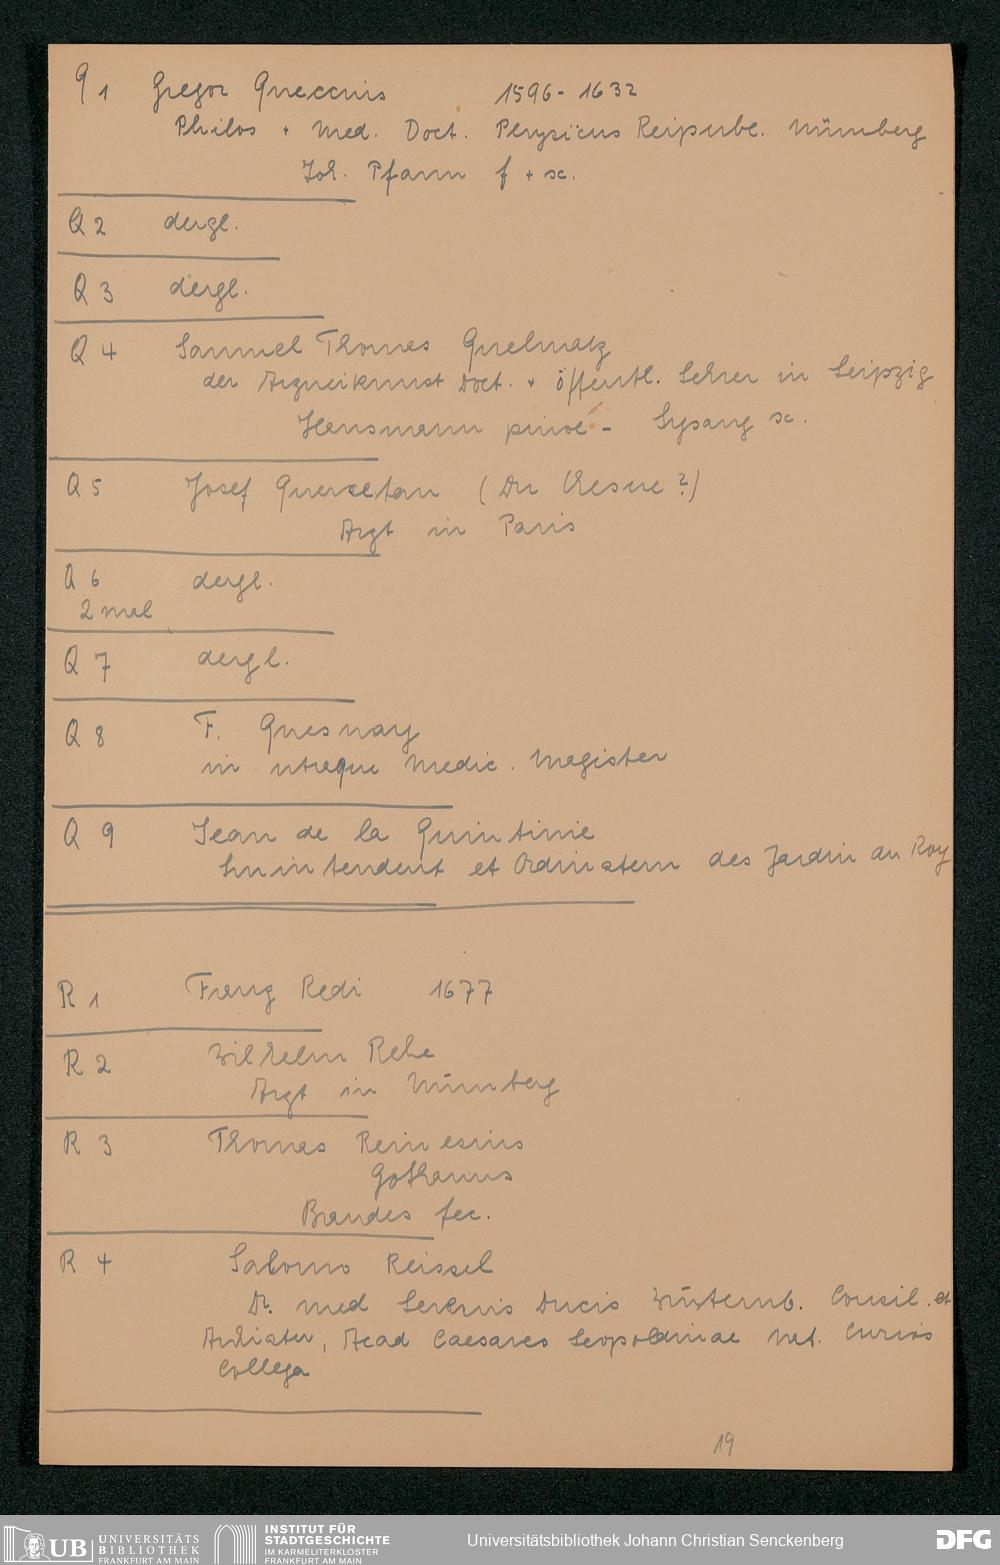 Q 1 Gregor Queccius 1596-1632
Philos + Med. Doct. Physicus Reipubl. Nürnberg
Joh. Pfann f + sc.
Q 2 dergl.
Q 3 dergl.
Q 4 Samuel Thomas Quelmatz
der Arzneikunst Doct. + öffentl. Lehrer in Leipzig
Hausmann pinx - Sysang sc.
Q 5 Josef Quercetan (Du Chesne?)
Arzt in Paris
Q 6 dergl.
2 mal
Q 7 dergl.
Q 8 F. Quesnay
in utraque Medic. Magister
Q 9 Jean de la Quintinie
et des Jardin du Roy
R 1 Franz Redi 1677
R 2 Wilhelm Rehe
Arzt in Nürnberg
R 3 Thomas Reinesius
Gothanus
Brandes fec.
R 4 Salomo Reissel
Dr. med Ducis Württemb. Consil. et
Archiater, Acad Caesareo Leopoldinae Nat. Curios
Collega
19
UB UNIVERSITÄTS
BIBLIOTHEK
FRANKFURT AM MAIN
INSTITUT FÜR
STADTGESCHICHTE
IM KARMELITERKLOSTER
FRANKFURT AM MAIN
Universitätsbibliothek Johann Christian Senckenberg
DFG